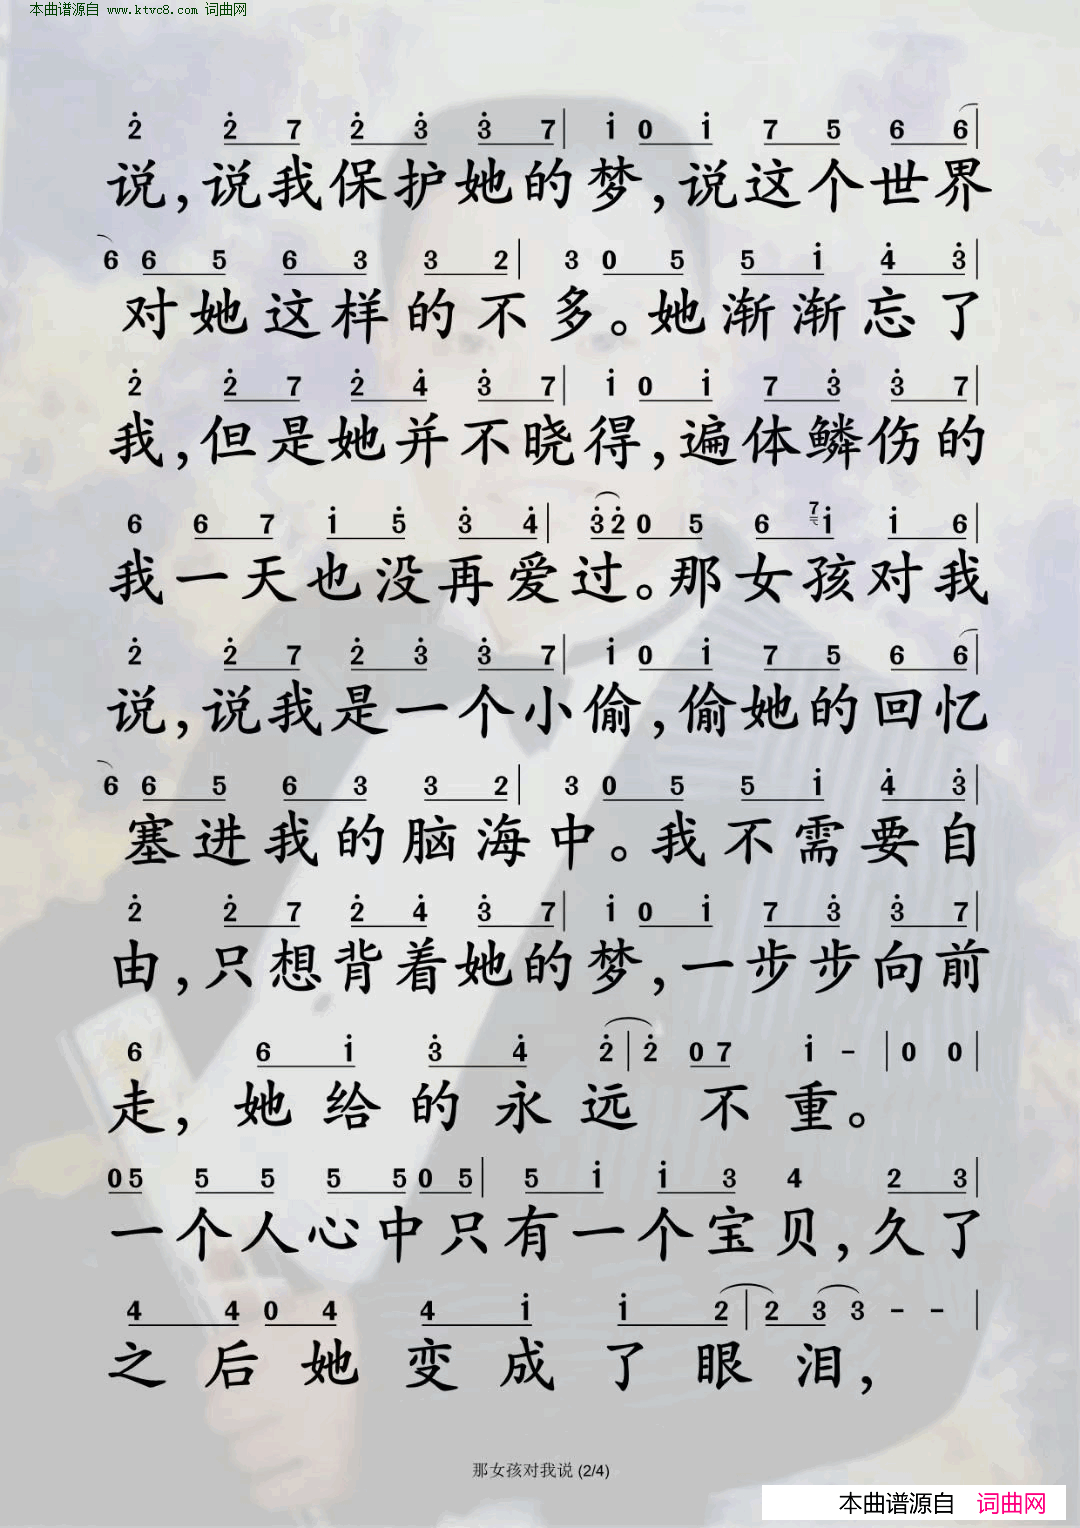 本曲谱源自 www.ktvc8.com 词曲网
2̇ 2̇ 7 2̇ 3̇ 3̇ 7 | 1̇ 0 1̇ 7 5 6 6 |
说,说我保护她的梦,说这个世界
6 6 5 6 3 3 2 | 3 0 5 5 1̇ 4̇ 3̇ |
对她这样的不多。她渐渐忘了
2̇ 2̇ 7 2̇ 4̇ 3̇ 7 | 1̇ 0 1̇ 7 3̇ 3̇ 7 |
我,但是她并不晓得,遍体鳞伤的
6 6 7 1̇ 5̇ 3̇ 4̇ | 3̇ 2̇ 0 5 6 7 1̇ 1̇ 6 |
我一天也没再爱过。那女孩对我
2̇ 2̇ 7 2̇ 3̇ 3̇ 7 | 1̇ 0 1̇ 7 5 6 6 |
说,说我是一个小偷,偷她的回忆
6 6 5 6 3 3 2 | 3 0 5 5 1̇ 4̇ 3̇ |
塞进我的脑海中。我不需要自
2̇ 2̇ 7 2̇ 4̇ 3̇ 7 | 1̇ 0 1̇ 7 3̇ 3̇ 7 |
由,只想背着她的梦,一步步向前
6 6 1̇ 3̇ 4̇ 2̇ | 2̇ 0 7 1̇ - | 0 0 |
走,她给的永远不重。
0 5 5 5 5 5 0 5 | 5 1̇ 1̇ 3 4 2 3 |
一个人心中只有一个宝贝,久了
4 4 0 4 4 1̇ 1̇ 2 | 2 3 3 - - |
之后她变成了眼泪,
那女孩对我说 (2/4)
本曲谱源自 词曲网